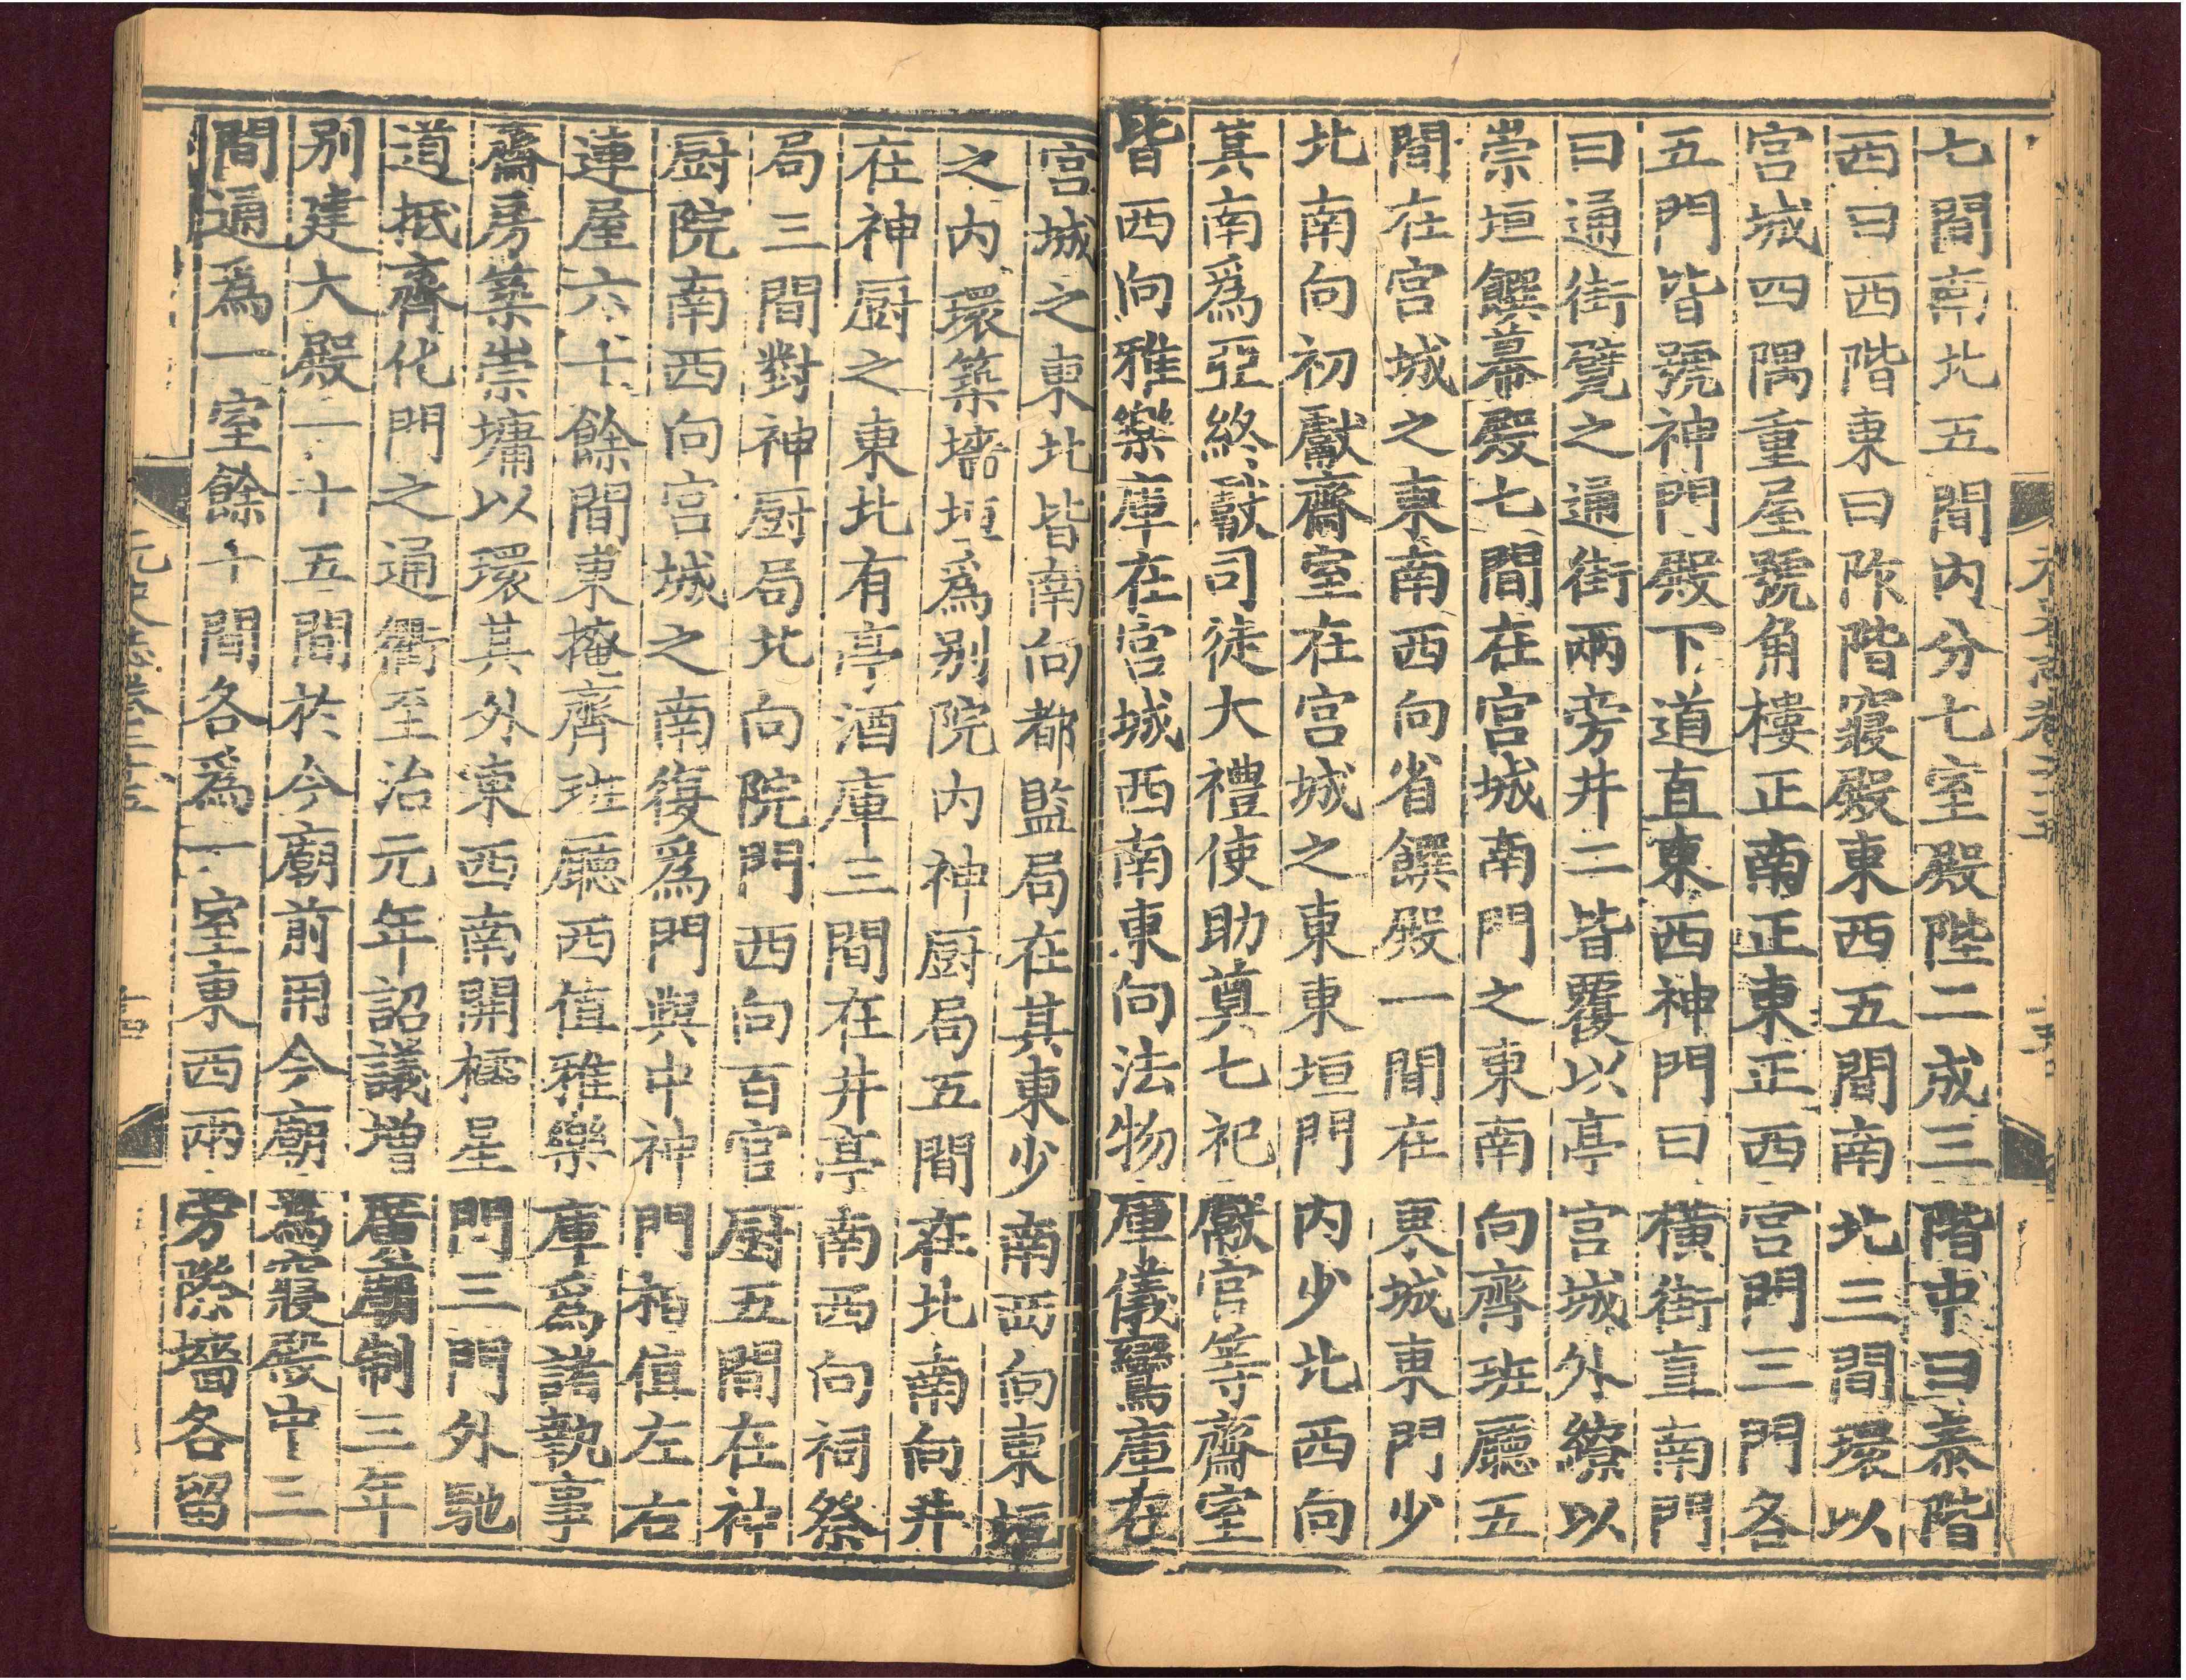 七間南北五間内分七室殿陛二成三階中曰泰階
西曰西階東曰阼階寢殿東西五間南北三間環以
宮城四隅重屋號角樓正南正東正西宮門三門各
五門皆號神門殿下道直東西神門曰橫街直南門
曰通街甓之通街兩旁井二皆覆以亭宮城外繚以
崇垣饌幕殿七間在宮城南門之東南向齊班廳五
間在宮城之東南西向省饌殿一間在東城東門少
北南向初獻齋室在宮城之東東垣門内少北西向
其南爲亞終獻司徒大禮使助奠七祀獻官等齋室
皆西向雅樂庫在宮城西南東向法物庫儀鸞庫在
宮城之東北皆南向都監局在其東少南西向東垣
之内環築墻垣爲别院内神厨局五間在北南向井
在神厨之東北有亭酒庫三間在井亭南西向祠祭
局三間對神厨局北向院門西向百官厨五間在神
厨院南西向宮城之南復爲門與中神門相值左右
連屋六十餘間東掩齊班廳西值雅樂庫爲諸執事
齋房築崇墉以環其外東西南開櫺星門三門外馳
道抵齊化門之通衢至治元年詔議增廣廟制三年
别建大殿一十五間於今廟前用今廟爲寢殿中三
間通爲一室餘十間各爲一室東西兩旁際墻各留
元史志卷二十五
十四